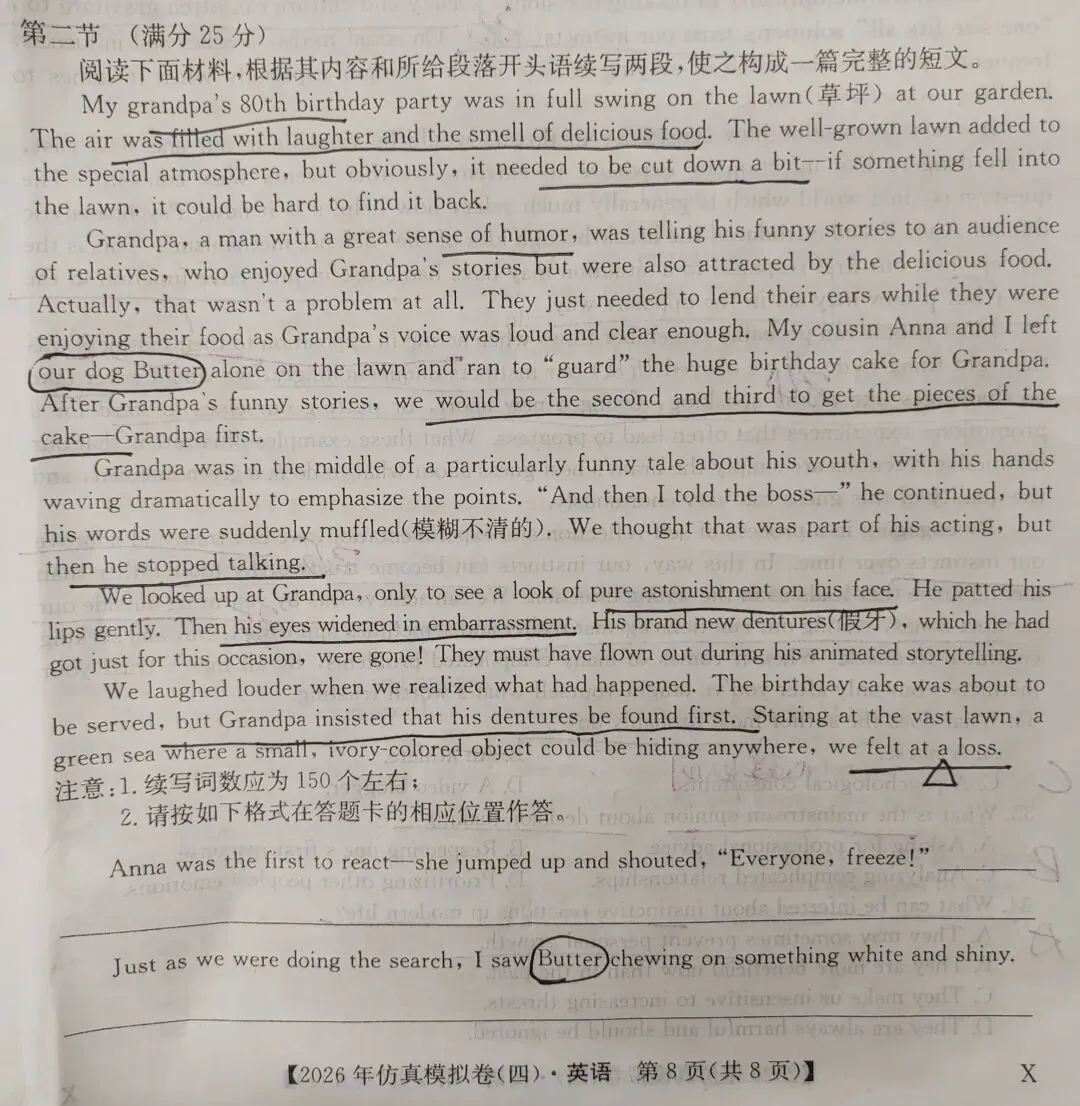 第二节 (满分 25 分)
阅读下面材料,根据其内容和所给段落开头语续写两段,使之构成一篇完整的短文。
My grandpa's 80th birthday party was in full swing on the lawn(草坪) at our garden.
The air was filled with laughter and the smell of delicious food. The well-grown lawn added to
the special atmosphere, but obviously, it needed to be cut down a bit—if something fell into
the lawn, it could be hard to find it back.
Grandpa, a man with a great sense of humor, was telling his funny stories to an audience
of relatives, who enjoyed Grandpa's stories but were also attracted by the delicious food.
Actually, that wasn't a problem at all. They just needed to lend their ears while they were
enjoying their food as Grandpa's voice was loud and clear enough. My cousin Anna and I left
our dog Butter alone on the lawn and ran to "guard" the huge birthday cake for Grandpa.
After Grandpa's funny stories, we would be the second and third to get the pieces of the
cake—Grandpa first.
Grandpa was in the middle of a particularly funny tale about his youth, with his hands
waving dramatically to emphasize the points. "And then I told the boss—" he continued, but
his words were suddenly muffled(模糊不清的). We thought that was part of his acting, but
then he stopped talking.
We looked up at Grandpa, only to see a look of pure astonishment on his face. He patted his
lips gently. Then his eyes widened in embarrassment. His brand new dentures(假牙), which he had
got just for this occasion, were gone! They must have flown out during his animated storytelling.
We laughed louder when we realized what had happened. The birthday cake was about to
be served, but Grandpa insisted that his dentures be found first. Staring at the vast lawn, a
green sea where a small, ivory-colored object could be hiding anywhere, we felt at a loss.
注意:1. 续写词数应为 150 个左右;
2. 请按如下格式在答题卡的相应位置作答。
Anna was the first to react—she jumped up and shouted, "Everyone, freeze!"
Just as we were doing the search, I saw Butter chewing on something white and shiny.
【2026 年仿真模拟卷(四)·英语 第 8 页(共 8 页)】 X